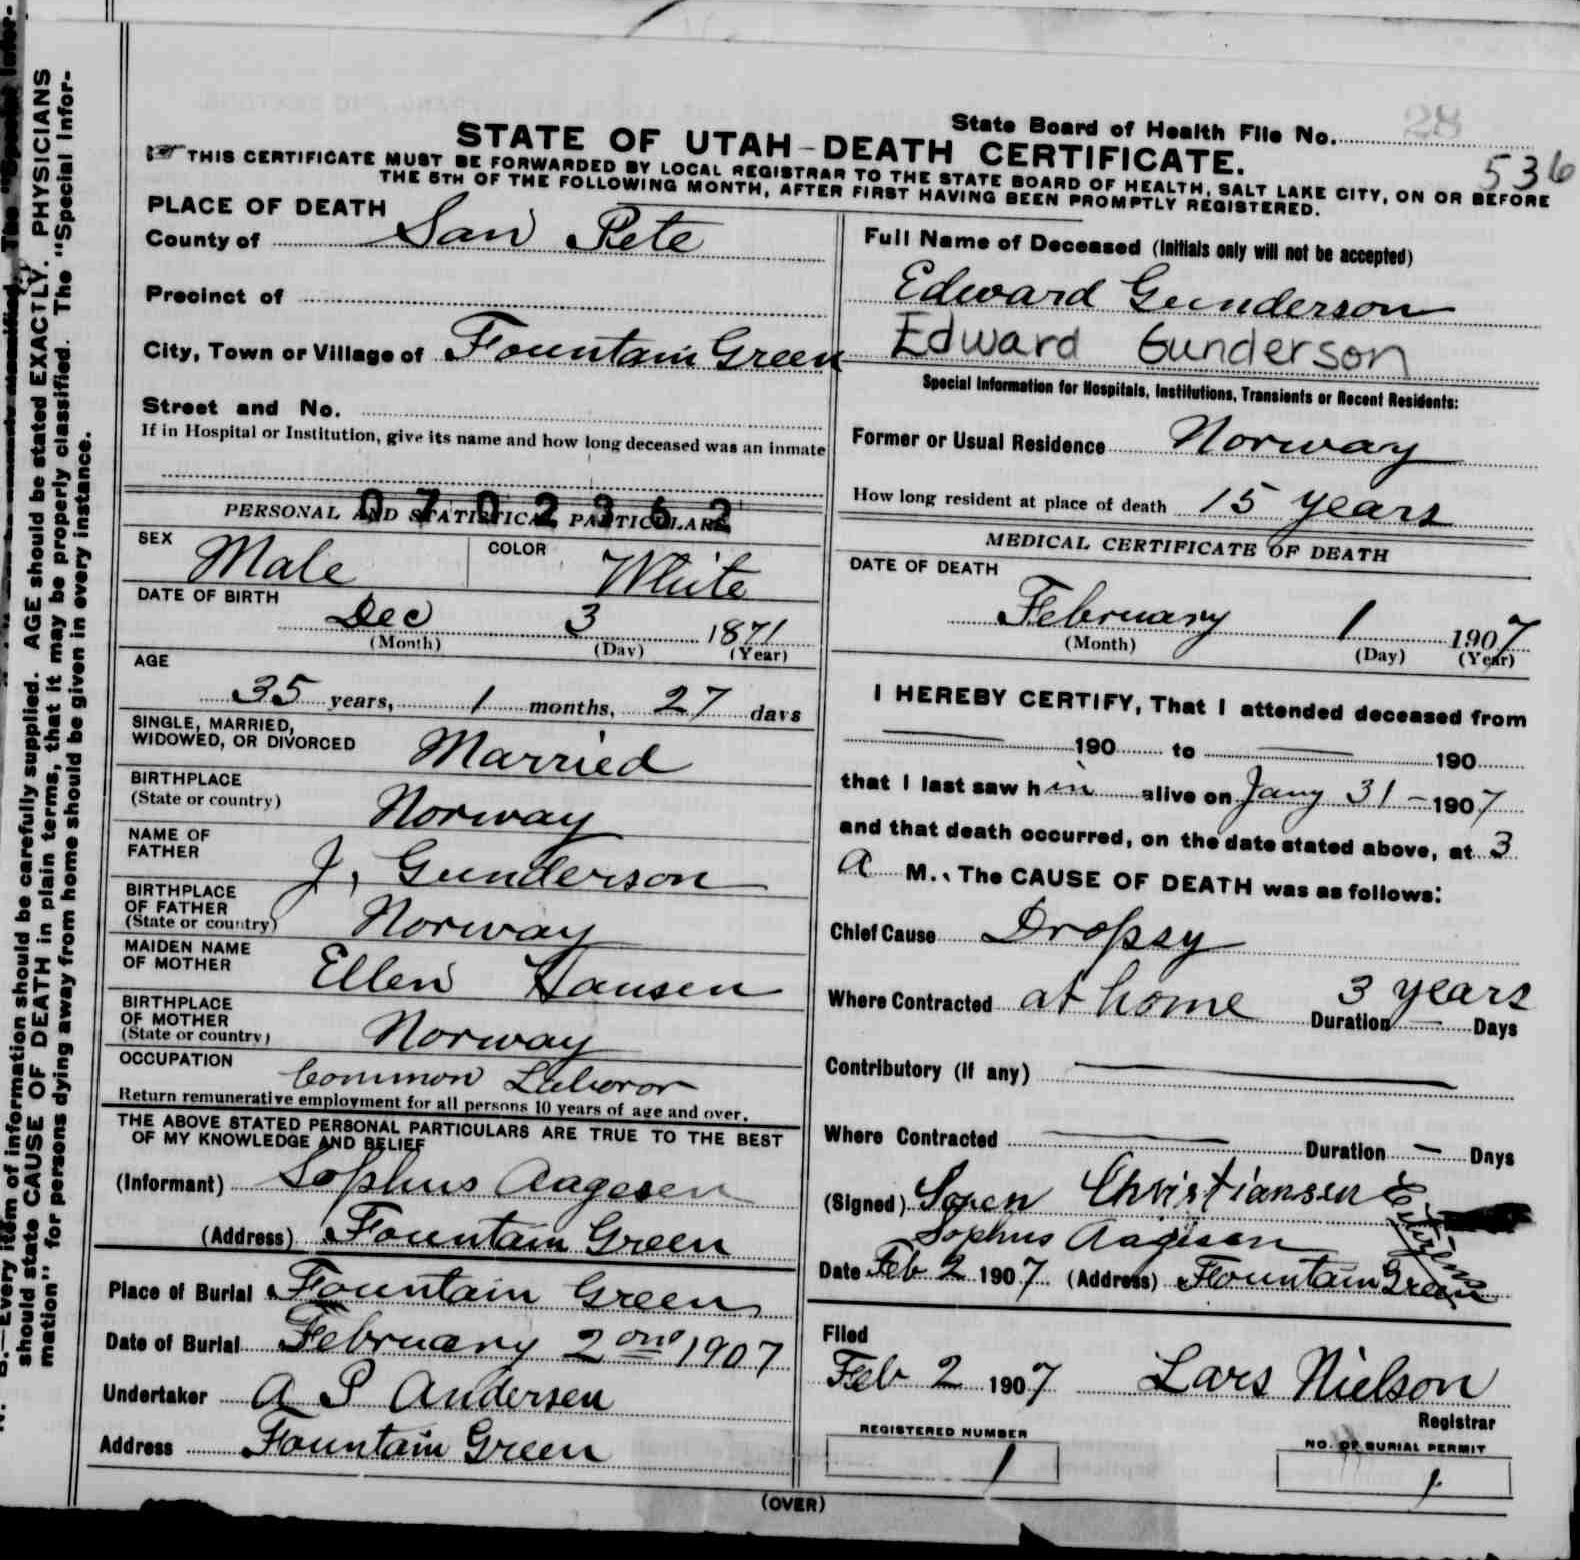 State Board of Health File No. 28
536
STATE OF UTAH–DEATH CERTIFICATE.
THIS CERTIFICATE MUST BE FORWARDED BY LOCAL REGISTRAR TO THE STATE BOARD OF HEALTH, SALT LAKE CITY, ON OR BEFORE
THE 5TH OF THE FOLLOWING MONTH, AFTER FIRST HAVING BEEN PROMPTLY REGISTERED.
PLACE OF DEATH
County of San Pete
Precinct of
City, Town or Village of Fountain Green
Street and No.
If in Hospital or Institution, give its name and how long deceased was an inmate
0702362
PERSONAL AND STATISTICAL PARTICULARS
SEX Male COLOR White
DATE OF BIRTH
Dec 3 1871
(Month) (Day) (Year)
AGE
35 years, 1 months, 27 days
SINGLE, MARRIED,
WIDOWED, OR DIVORCED Married
BIRTHPLACE
(State or country) Norway
NAME OF
FATHER J. Gunderson
BIRTHPLACE
OF FATHER
(State or country) Norway
MAIDEN NAME
OF MOTHER Ellen Hansen
BIRTHPLACE
OF MOTHER
(State or country) Norway
OCCUPATION Common Laboror
Return remunerative employment for all persons 10 years of age and over.
THE ABOVE STATED PERSONAL PARTICULARS ARE TRUE TO THE BEST
OF MY KNOWLEDGE AND BELIEF
(Informant) Sophus Aagesen
(Address) Fountain Green
Place of Burial Fountain Green
Date of Burial February 2ond 1907
Undertaker A P Andersen
Address Fountain Green
Full Name of Deceased (Initials only will not be accepted)
Edward Gunderson
Edward Gunderson
Special Information for Hospitals, Institutions, Transients or Recent Residents:
Former or Usual Residence Norway
How long resident at place of death 15 years
MEDICAL CERTIFICATE OF DEATH
DATE OF DEATH
February 1 1907
(Month) (Day) (Year)
I HEREBY CERTIFY, That I attended deceased from
— 190 to — 190
that I last saw h im alive on Jany 31 – 1907
and that death occurred, on the date stated above, at 3
a M., The CAUSE OF DEATH was as follows:
Chief Cause Dropsy
Where Contracted at home Duration 3 years — Days
Contributory (if any) —
Where Contracted — Duration — Days
(Signed) Soren Christiansen Citizens
Sophus Aagesen
Date Feb 2 1907 (Address) Fountain Green
Filed
Feb 2 1907 Lars Nielson
Registrar
REGISTERED NUMBER
1
NO. OF BURIAL PERMIT
1
(OVER)
B.—Every item of information should be carefully supplied. AGE should be stated EXACTLY. PHYSICIANS
should state CAUSE OF DEATH in plain terms, that it may be properly classified. The "Special Infor-
mation" for persons dying away from home should be given in every instance.